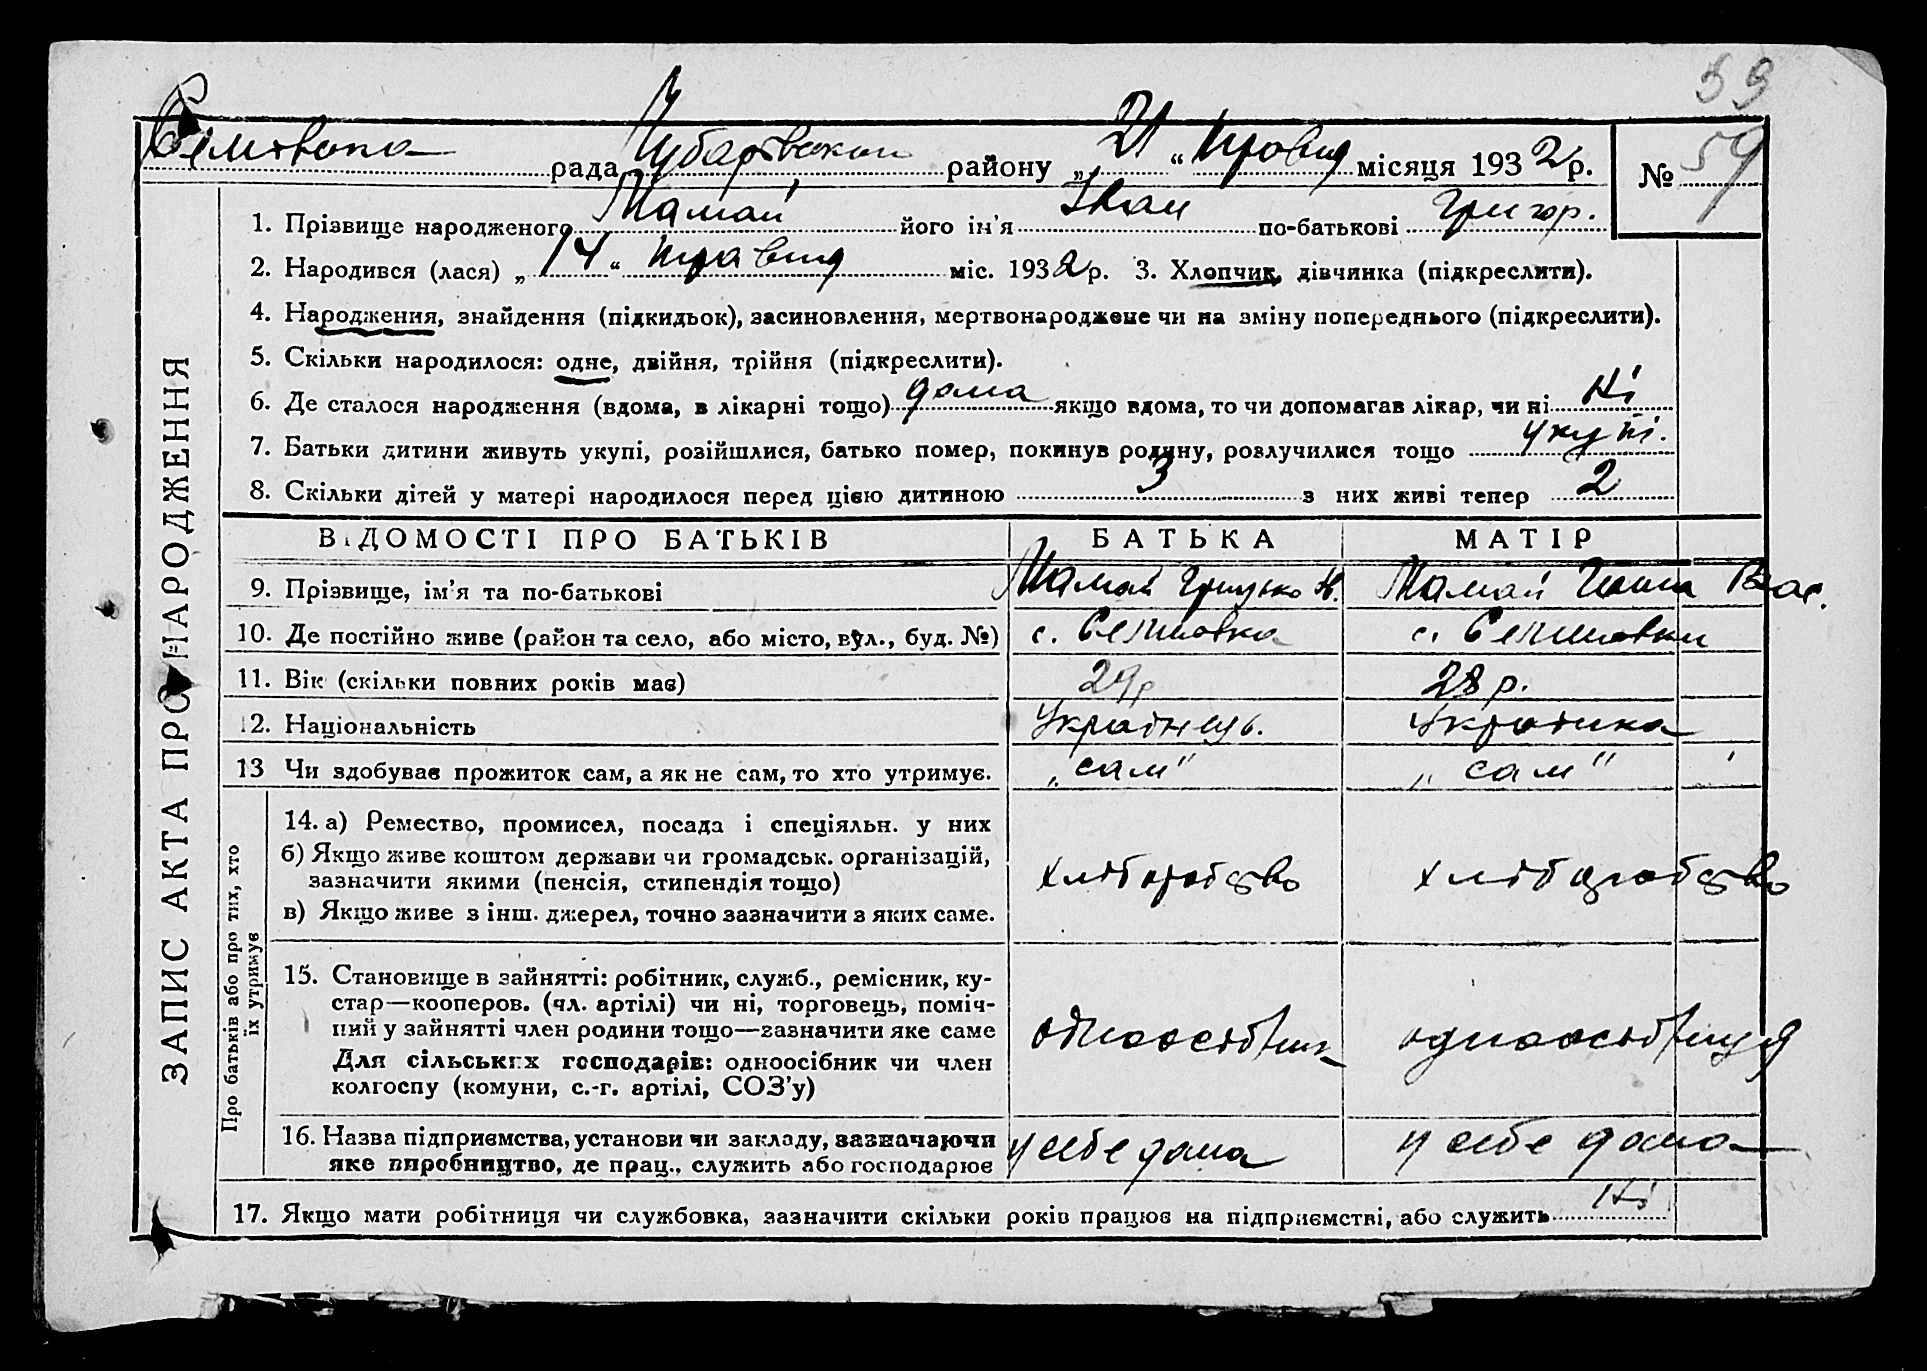 59
рада Чубарівського району „21“ травня місяця 1932 р. № 59
ЗАПИС АКТА ПРО НАРОДЖЕННЯ
1. Прізвище народженого Мамай його ім'я Іван по-батькові Григор.
2. Народився (лася) „14“ травня міс. 1932 р. 3. Хлопчик, дівчинка (підкреслити).
4. Народження, знайдення (підкидьок), засиновлення, мертвонароджене чи на зміну попереднього (підкреслити).
5. Скільки народилося: одне, двійня, трійня (підкреслити).
6. Де сталося народження (вдома, в лікарні тощо) дома якщо вдома, то чи допомагав лікар, чи ні Ні
7. Батьки дитини живуть укупі, розійшлися, батько помер, покинув родину, розлучилися тощо укупі.
8. Скільки дітей у матері народилося перед цією дитиною 3 з них живі тепер 2
ВІДОМОСТІ ПРО БАТЬКІВ БАТЬКА МАТІР
9. Прізвище, ім'я та по-батькові Мамай Грицько Мамай Вас.
10. Де постійно живе (район та село, або місто, вул., буд. №) с. с.
11. Вік (скільки повних років має) 29р 28 р.
12. Національність Українець. Українка
13 Чи здобуває прожиток сам, а як не сам, то хто утримує. „сам“ „сам“
Про батьків або про тих, хто
їх утримує
14. а) Ремество, промисел, посада і спеціяльн. у них
б) Якщо живе коштом держави чи громадськ. організацій,
зазначити якими (пенсія, стипендія тощо)
в) Якщо живе з інш. джерел, точно зазначити з яких саме.
хліборобство хліборобство
15. Становище в зайнятті: робітник, служб., ремісник, ку-
стар—кооперов. (чл. артілі) чи ні, торговець, поміч-
ний у зайнятті член родини тощо—зазначити яке саме
Для сільських господарів: одноосібник чи член
колгоспу (комуни, с.-г. артілі, СОЗ'у)
одноосібник одноосібниця
16. Назва підприємства, установи чи закладу, зазначаючи
яке виробництво, де прац., служить або господарює
у себе дома у себе дома
17. Якщо мати робітниця чи службовка, зазначити скільки років працює на підприємстві, або служить Ні